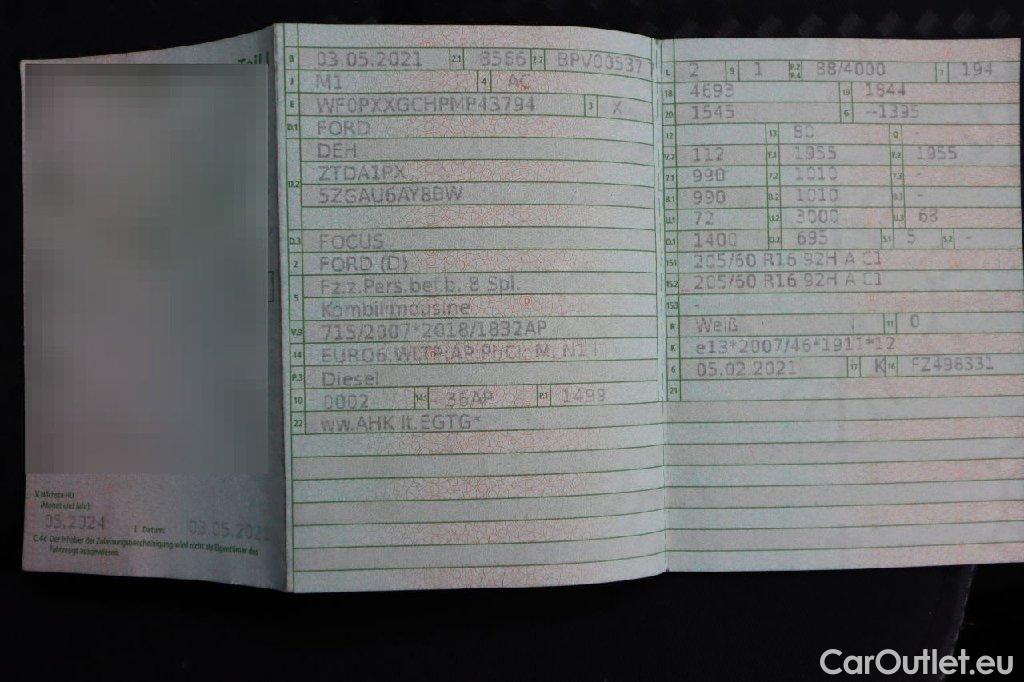 Teil I
B 03.05.2021 2.1 8566 2.2 BPV00537
J M1 4 AC
E WF0PXXGCHPMP43794 3 X
D.1 FORD
DEH
ZTDA1PX
D.2 5ZGAU6AY8BW
D.3 FOCUS
2 FORD (D)
5 Fz.z.Pers.bef.b. 8 Spl.
Kombilimousine
V.9 715/2007*2018/1832AP
14 EURO6
P.3 Diesel
10 0002 14.1 36AP P.1 1499
22 ww.AHK lt.EGTG*
V. Nächste HU
(Monat und Jahr)
05.2024 I Datum: 03.05.2021
C.4c Der Inhaber der Zulassungsbescheinigung wird nicht als Eigentümer des
Fahrzeugs ausgewiesen.
L 2 9 1 P.2 P.4 88/4000 T 194
18 4693 19 1844
20 1545 G --1395
12 13 80 Q -
V.7 112 F.1 1955 F.2 1955
7.1 990 7.2 1010 7.3 -
8.1 990 8.2 1010 8.3 -
U.1 72 U.2 3000 U.3 68
O.1 1400 O.2 695 S.1 5 S.2 -
15.1 205/60 R16 92H A C1
15.2 205/60 R16 92H A C1
15.3 -
R Weiß 11 0
K e13*2007/46*1911*12
6 05.02.2021 17 K 16 FZ498331
21
CarOutlet.eu